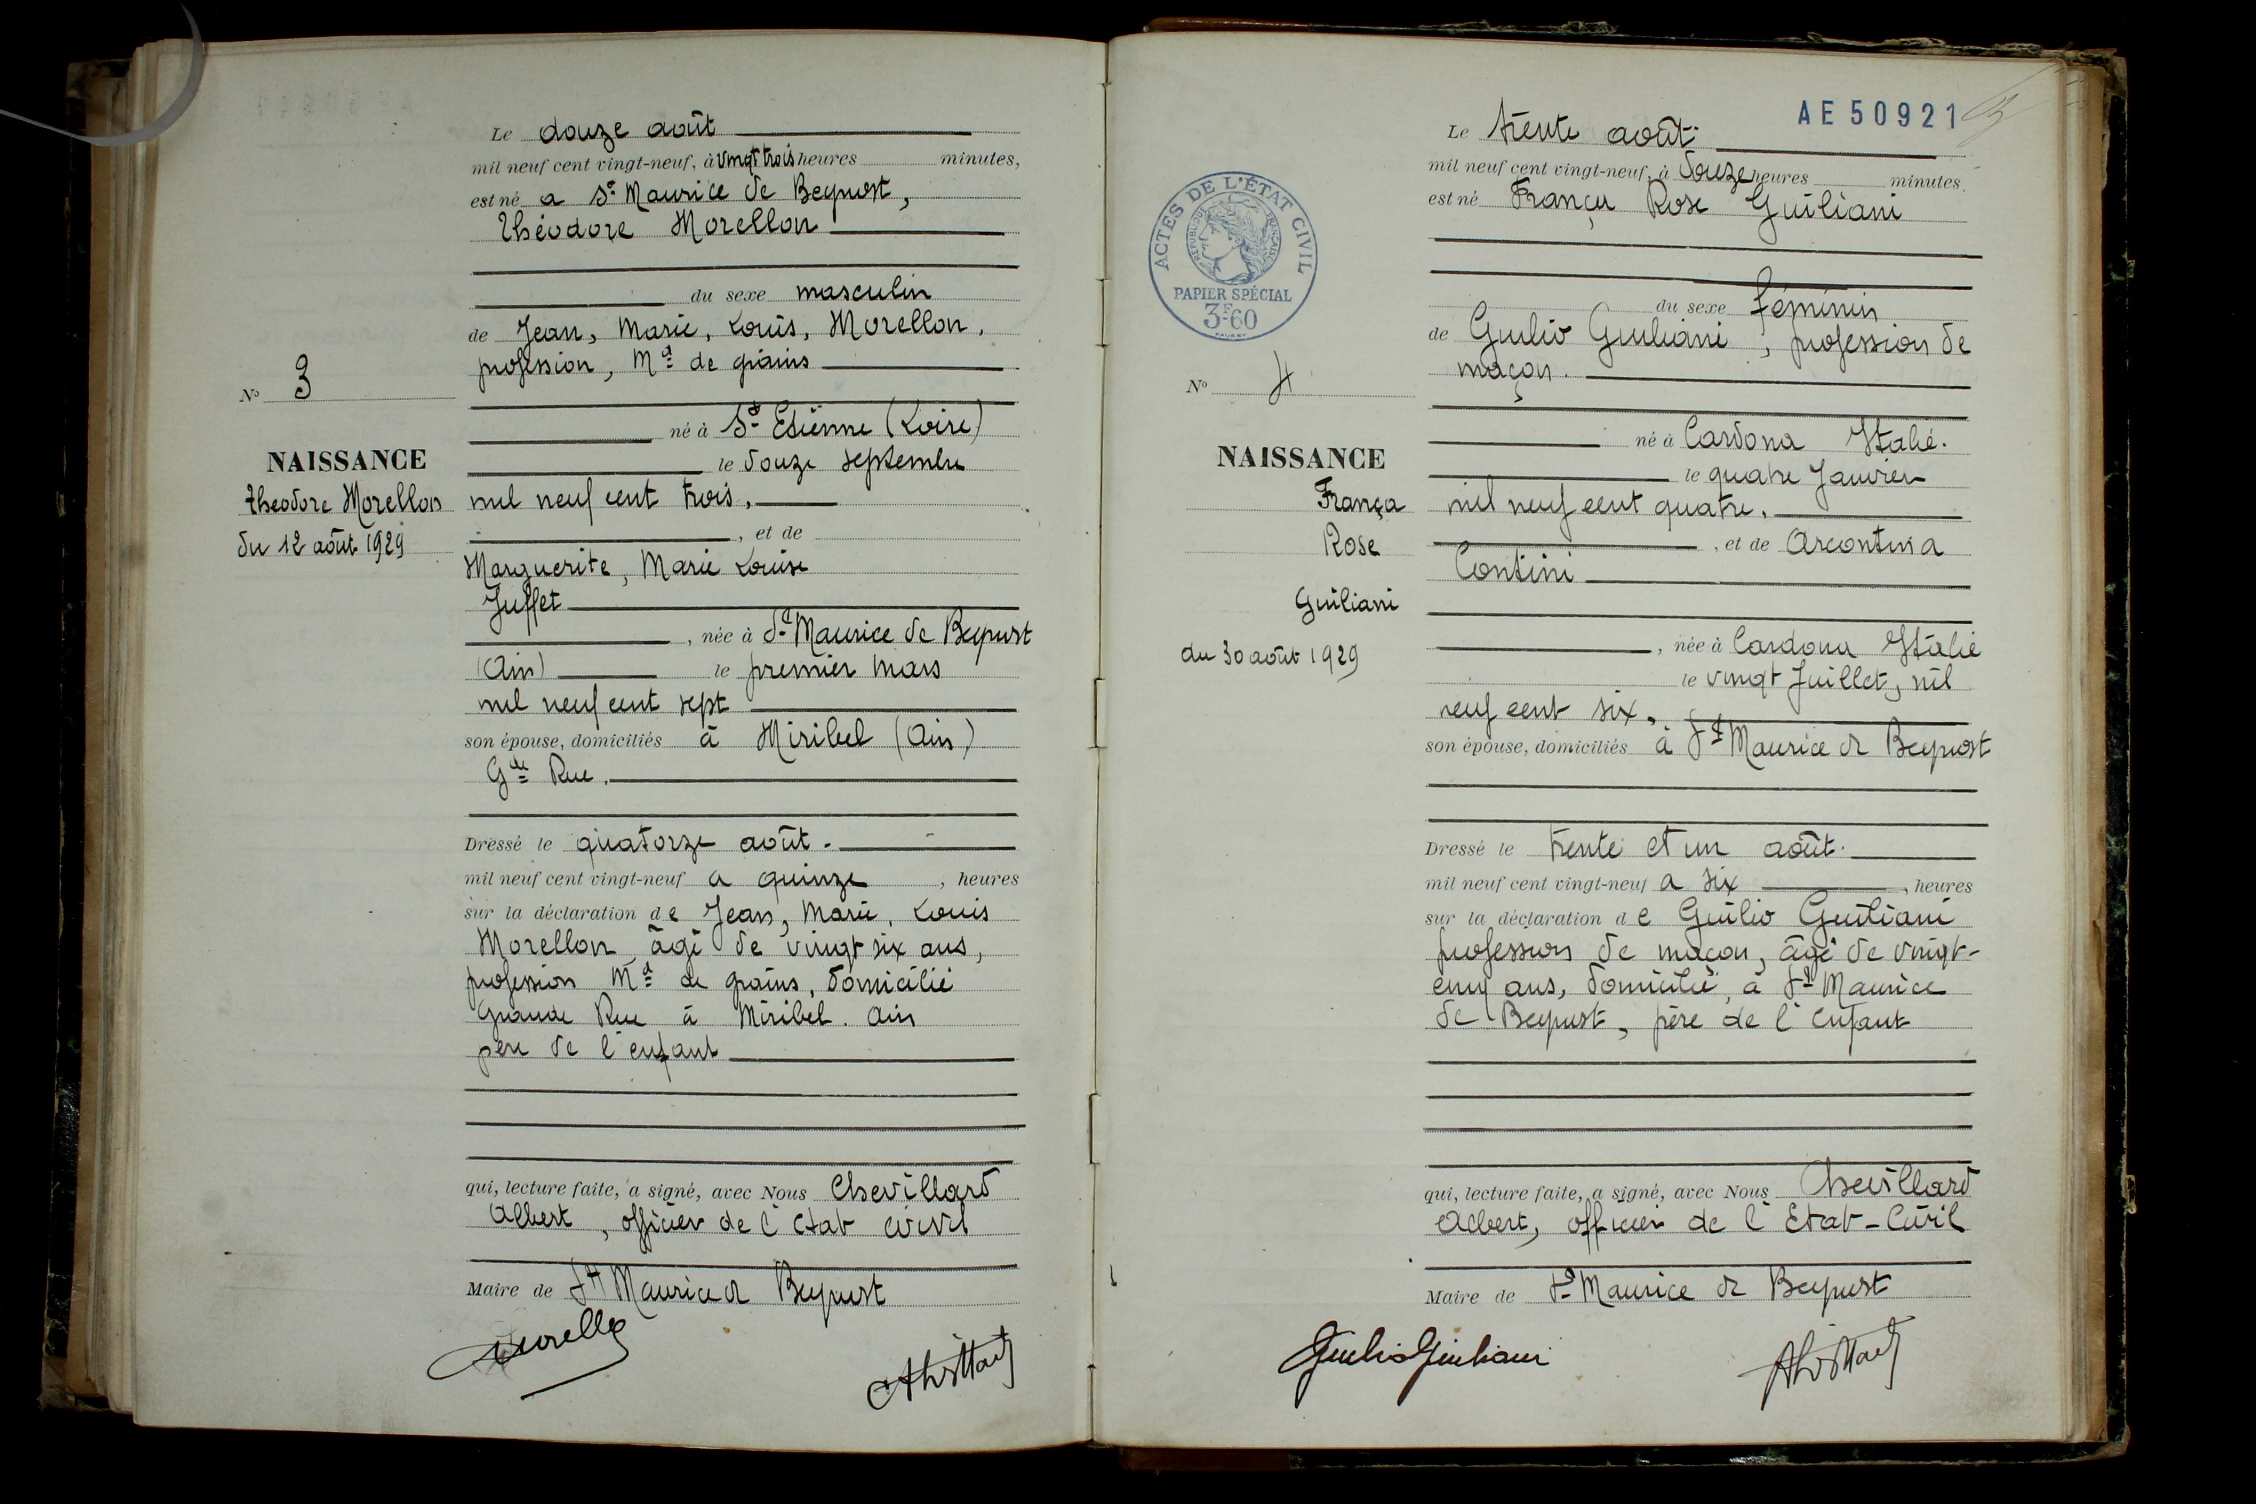 Le douze août
mil neuf cent vingt-neuf, à vingt trois heures minutes,
est né a St Maurice de Beynost,
Théodore Morellon
du sexe masculin
de Jean, Marie, Louis, Morellon,
profession, Md de grains
né à St Etienne (Loire)
le douze septembre
mil neuf cent trois,
, et de
Marguerite, Marie Louise
Juffet
, née à St Maurice de Beynost
(Ain) le premier mars
mil neuf cent sept
son épouse, domiciliés à Miribel (Ain)
Gde Rue.
Dressé le quatorze août.
mil neuf cent vingt-neuf a quinze , heures
sur la déclaration de Jean, Marie, Louis
Morellon âgé de vingt six ans,
profession Md de grains, domicilié
Grande Rue à Miribel. Ain
père de l'enfant
qui, lecture faite, a signé, avec Nous Chevillard
Albert, officier de l'état civil
Maire de St Maurice de Beynost
No 3
NAISSANCE
Théodore Morellon
du 12 août 1929
AE 50921
Le trente août.
mil neuf cent vingt-neuf, à douze heures minutes.
est né França Rose Guiliani
du sexe féminin
de Giulio Giuliani, profession de
maçon.
né à Cardona Italie.
le quatre Janvier
mil neuf cent quatre.
, et de Arcontina
Contini
, née à Cardona Italie
le vingt Juillet, mil
neuf cent six.
son épouse, domiciliés à St Maurice de Beynost
Dressé le trente et un août.
mil neuf cent vingt-neuf a six , heures
sur la déclaration de Guilio Guiliani
profession de maçon, âgé de vingt-
cinq ans, domicilié, à St Maurice
de Beynost, père de l'enfant
qui, lecture faite, a signé, avec Nous Chevillard
Albert, officier de l'Etat-Civil
Maire de St Maurice de Beynost
Giulio Giuliani
ACTES DE L'ÉTAT CIVIL
RÉPUBLIQUE FRANÇAISE
PAPIER SPÉCIAL
3F60
No 4
NAISSANCE
França
Rose
Guiliani
du 30 août 1929